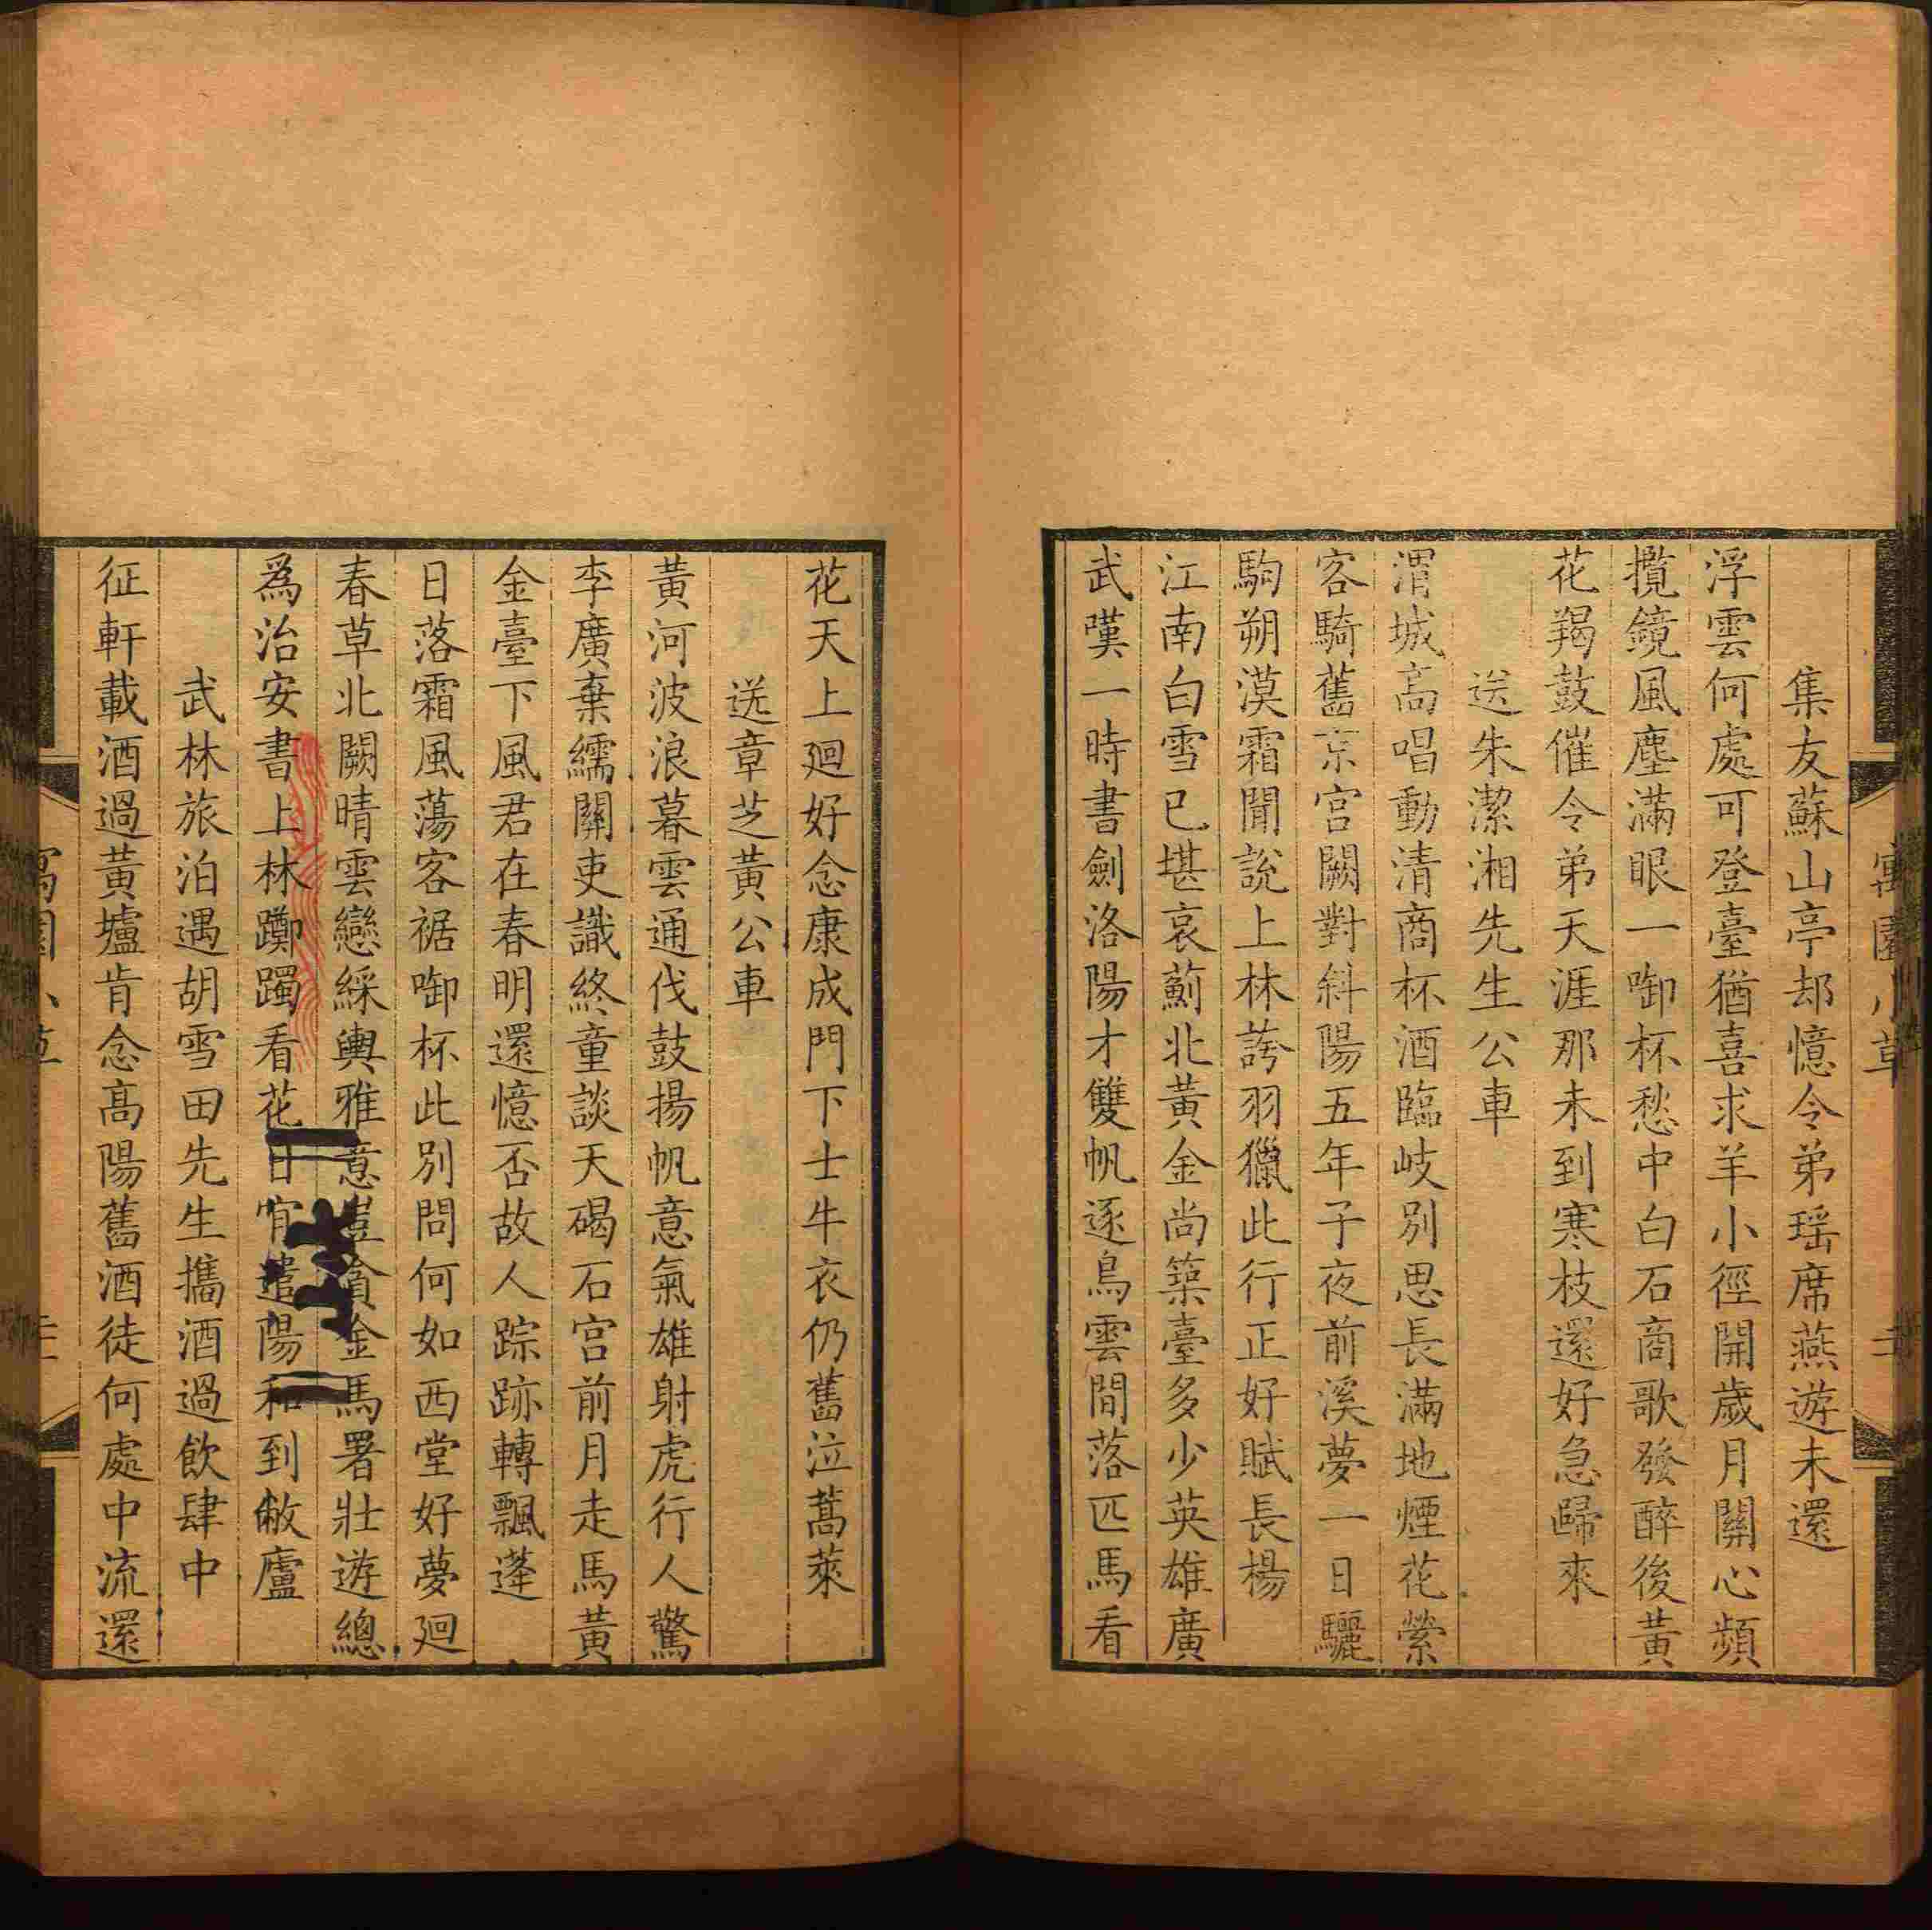 集友蘇山亭却憶令弟瑶席燕遊未還
浮雲何處可登臺猶喜求羊小徑開歲月關心頻
攬鏡風塵滿眼一啣杯愁中白石商歌發醉後黃
花羯鼓催令弟天涯那未到寒枝還好急歸來
送朱潔湘先生公車
渭城高唱動清商杯酒臨岐別思長滿地煙花縈
客騎舊京宫闕對斜陽五年子夜前溪夢一日驪
駒朔漠霜聞說上林誇羽獵此行正好賦長楊
江南白雪已堪哀薊北黃金尚築臺多少英雄廣
武嘆一時書劍洛陽才雙帆逐鳥雲間落匹馬看
花天上廻好念康成門下士牛衣仍舊泣蒿萊
送章芝黃公車
黃河波浪暮雲通伐鼓揚帆意氣雄射虎行人驚
李廣棄繻關吏識終童談天碣石宫前月走馬黃
金臺下風君在春明還憶否故人踪跡轉飄蓬
日落霜風蕩客裾啣杯此別問何如西堂好夢廻
春草北闕晴雲戀綵輿雅意豈貪金馬署壯遊總
爲治安書上林躑躅看花日肯遣陽和到敝廬
武林旅泊遇胡雪田先生攜酒過飲肆中
征軒載酒過黃壚肯念高陽舊酒徒何處中流還